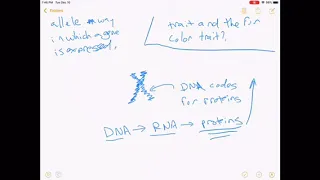 7:46 PM Tue Dec 15
allele → way
in which a gene
is expressed.
trait and the fur
color trait?
DNA codes
for proteins
DNA → RNA → proteins